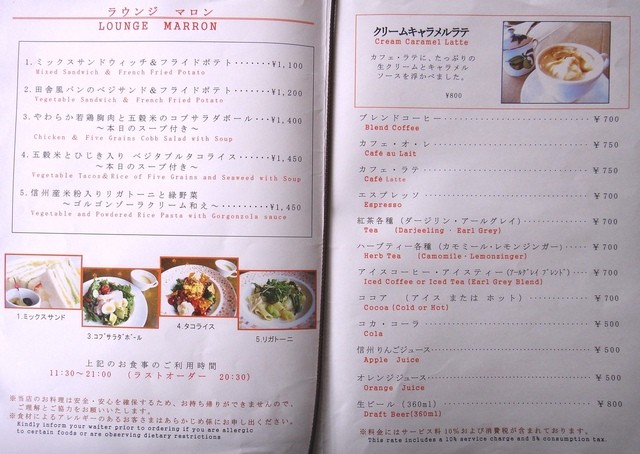 ラウンジ マロン
LOUNGE MARRON
1.ミックスサンドウィッチ&フライドポテト・・・・・・・¥1,100
Mixed Sandwich & French Fried Potato
2.田舎風パンのベジサンド&フライドポテト・・・・・・・¥1,200
Vegetable Sandwich & French Fried Potato
3.やわらか若鶏胸肉と五穀米のコブサラダボール・・・・¥1,400
～本日のスープ付き～
Chicken & Five Grains Cobb Salad with Soup
4.五穀米とひじき入り ベジタブルタコライス・・・・・・¥1,450
～本日のスープ付き～
Vegetable Tacos&Rice of Five Grains and Seaweed with Soup
5.信州産米粉入りリガトーニと緑野菜
～ゴルゴンゾーラクリーム和え～・・・・・・・・・¥1,450
Vegetable and Powdered Rice Pasta with Gorgonzola sauce
1.ミックスサンド
3.コブサラダボール
4.タコライス
5.リガトーニ
上記のお食事のご利用時間
11:30～21:00 (ラストオーダー 20:30)
※当店のお料理は安全・安心を確保するため、お持ち帰りができませんので、
ご理解とご協力をお願いいたします。
※食材によるアレルギーのあるお客さまはあらかじめ係にお申し出ください。
Kindly inform your waiter prior to ordering if you are allergic
to certain foods or are observing dietary restrictions
クリームキャラメルラテ
Cream Caramel Latte
カフェ・ラテに、たっぷりの
生クリームとキャラメル
ソースを浮かべました。
¥800
ブレンドコーヒー・・・・・・・・・・・・・・・・・・¥700
Blend Coffee
カフェ・オ・レ・・・・・・・・・・・・・・・・・・・¥750
Café au Lait
カフェ・ラテ・・・・・・・・・・・・・・・・・・・・¥750
Café Latte
エスプレッソ・・・・・・・・・・・・・・・・・・・・¥700
Espresso
紅茶各種 (ダージリン・アールグレイ)・・・・・・・・・¥700
Tea (Darjeeling・Earl Grey)
ハーブティー各種 (カモミール・レモンジンガー)・・・・¥700
Herb Tea (Camomile・Lemonzinger)
アイスコーヒー・アイスティー(アールグレイ ブレンド)・・・・¥700
Iced Coffee or Iced Tea(Earl Grey Blend)
ココア (アイス または ホット)・・・・・・・・・・・¥700
Cocoa(Cold or Hot)
コカ・コーラ・・・・・・・・・・・・・・・・・・・・¥500
Cola
信州りんごジュース・・・・・・・・・・・・・・・・・¥500
Apple Juice
オレンジジュース・・・・・・・・・・・・・・・・・・¥500
Orange Juice
生ビール (360ml)・・・・・・・・・・・・・・・・・・¥800
Draft Beer(360ml)
※料金にはサービス料10%および消費税が含まれております。
This rate includes a 10% service charge and 5% consumption tax.